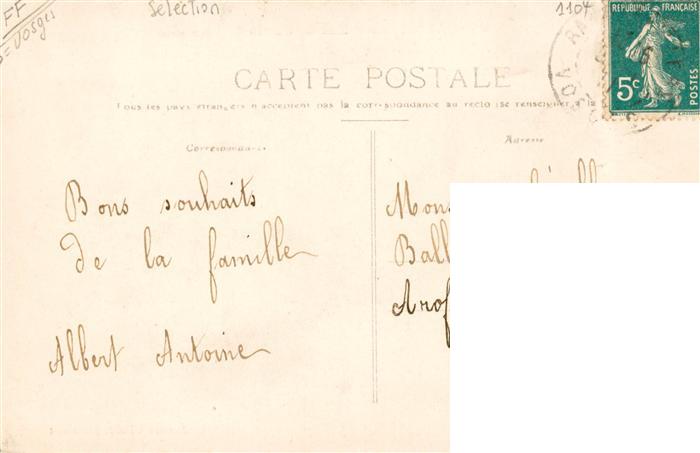 FF
Vosges
Selection
1104
REPUBLIQUE FRANÇAISE
5c
POSTES
CARTE POSTALE
Tous les pays étrangers n'acceptent pas la correspondance au recto (se renseigner à la
Correspondance
Adresse
Bons souhaits
de la famille
Albert Antoine
Mons
Ball
Arof